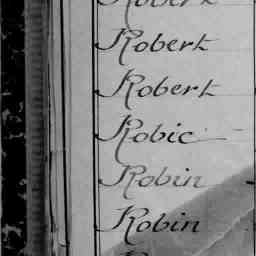 Robert
Robert
Robert
Robic
Robin
Robin